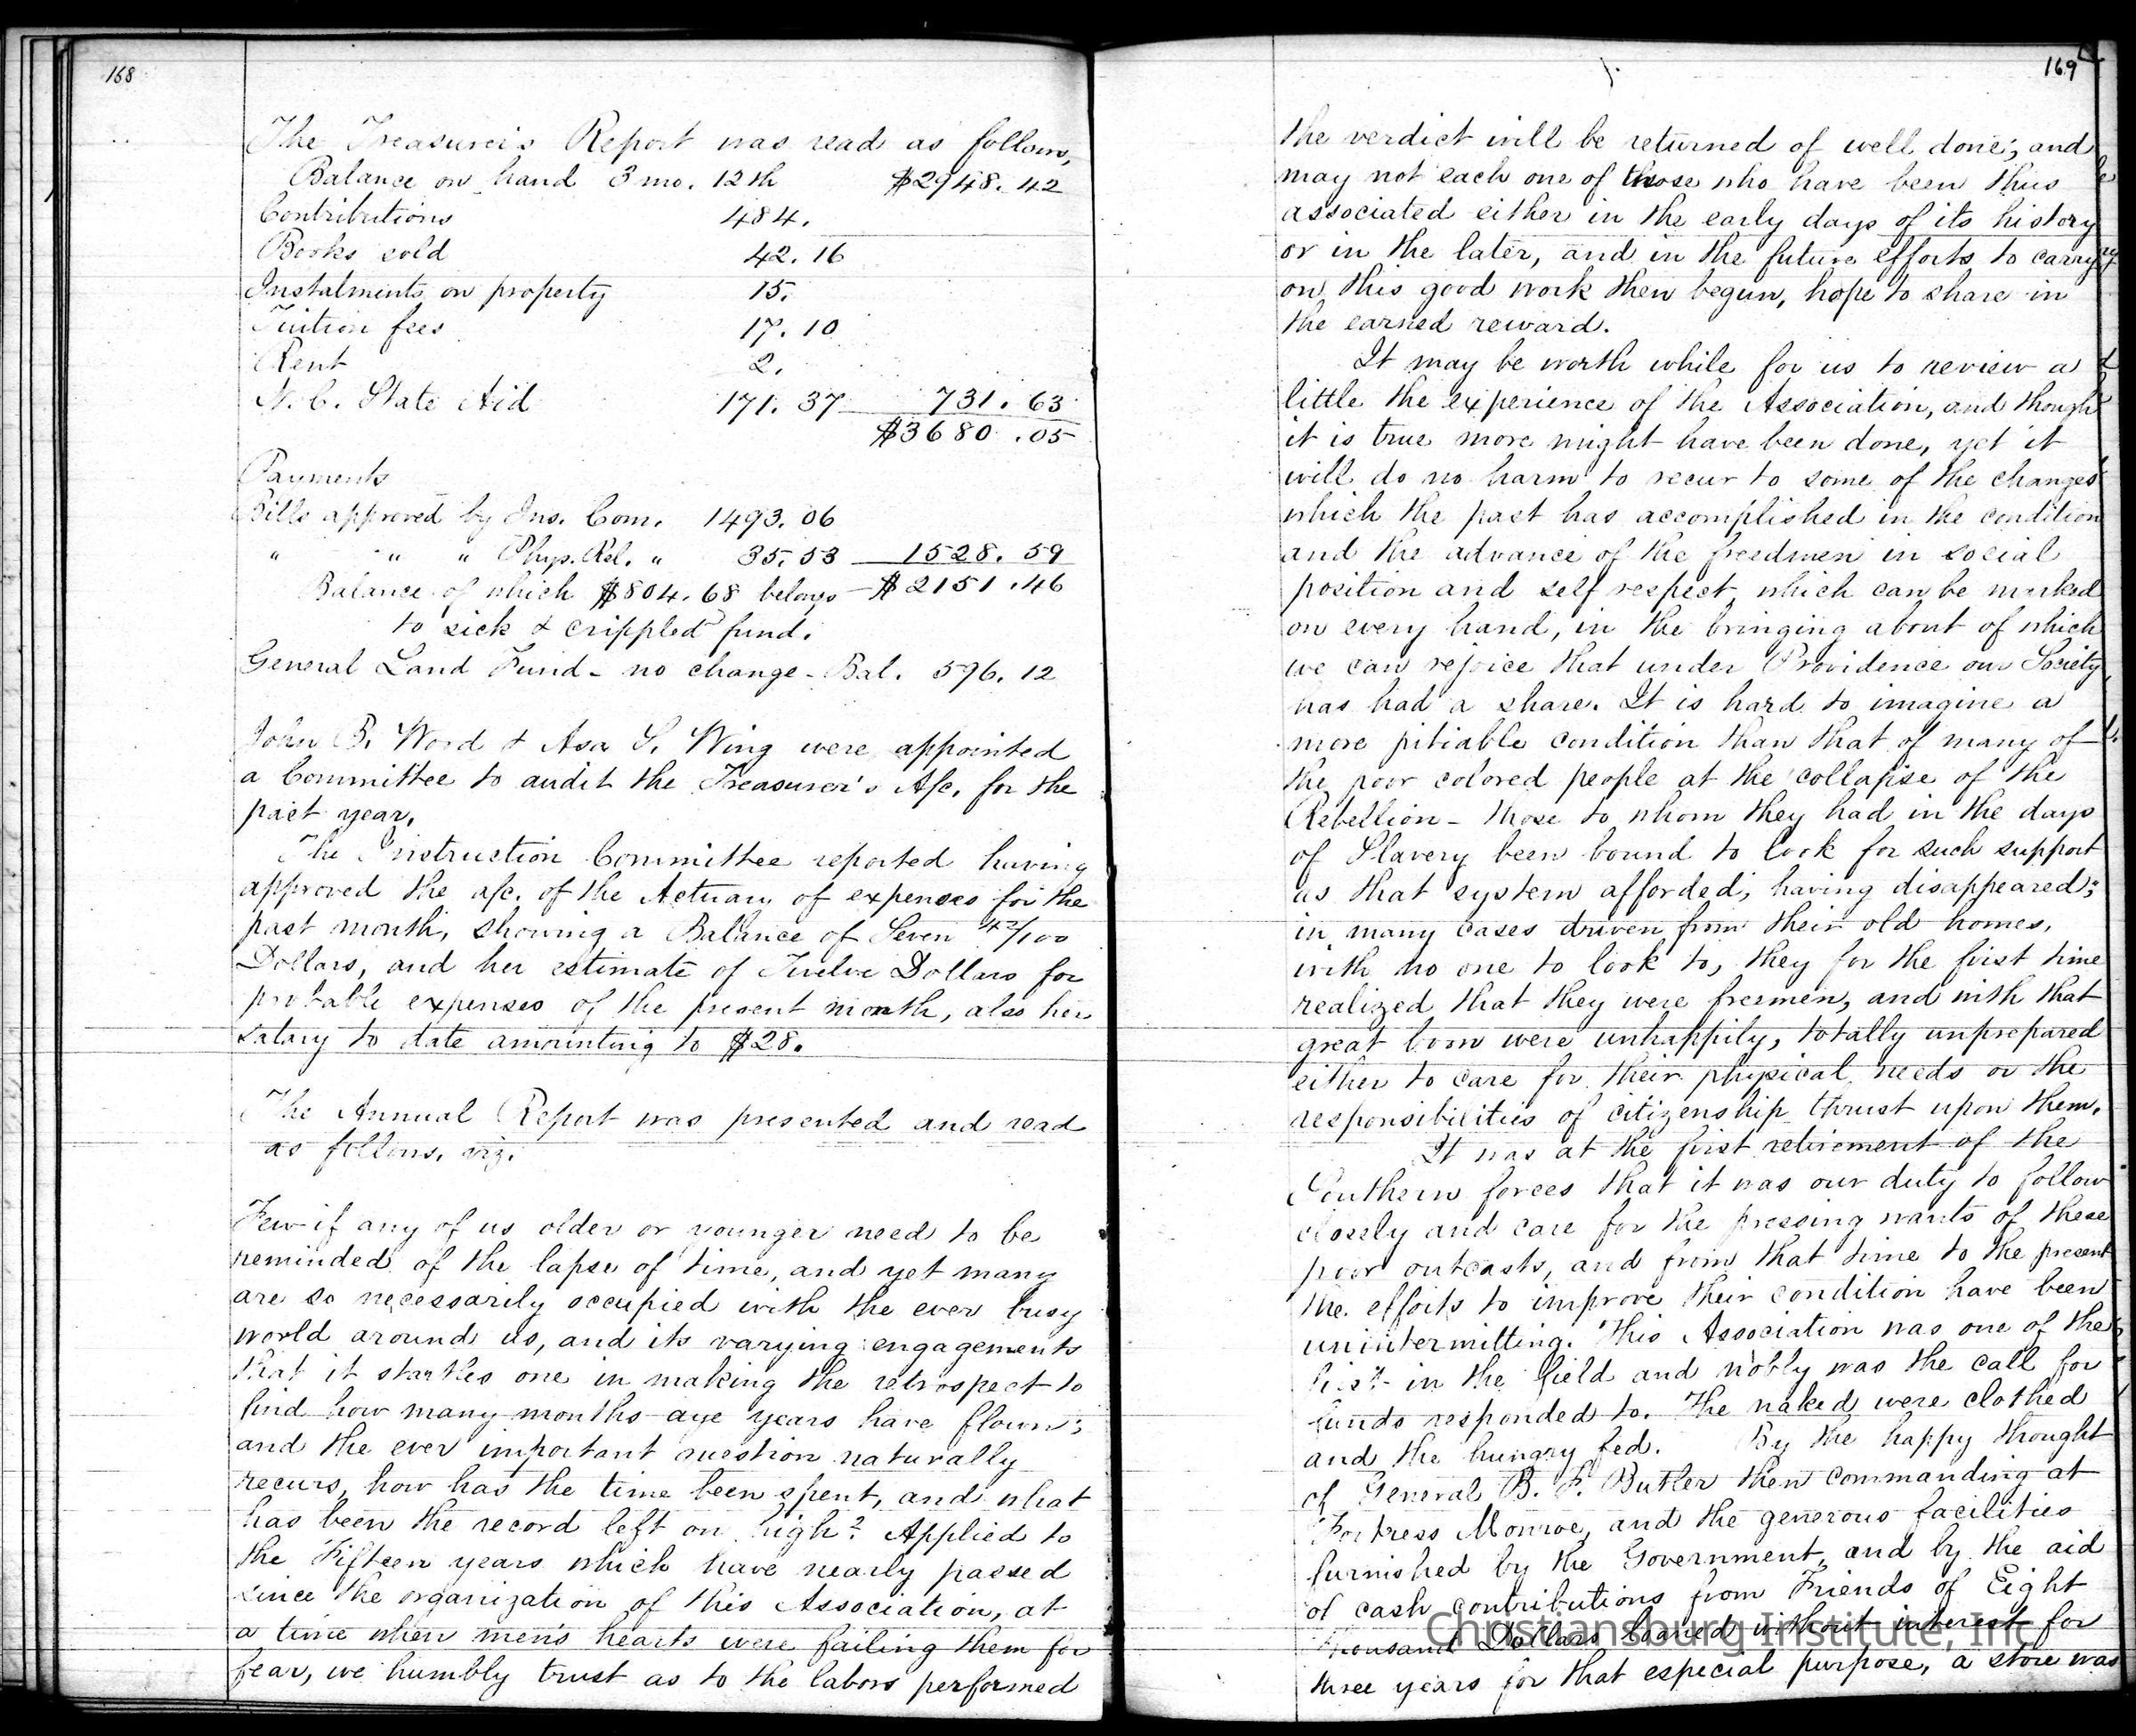 168
The Treasurer's Report was read as follows,
Balance on hand 3 mo. 12th $2948.42
Contributions 484.
Books sold 42.16
Instalments on property 15.
Tuition fees 17.10
Rent 2.
N.C. State Aid 171.37 731.63
$3680.05
Payments
Bills approved by Ins. Com. 1493.06
" " " Phys. Rel. " 35.53 1528.59
Balance of which $804.68 belongs $2151.46
to sick & crippled fund.
General Land Fund - no change - Bal. 596.12
John B. Wood & Asa S. Wing were appointed
a Committee to audit the Treasurer's A/c. for the
past year.
The Instruction Committee reported having
approved the a/c. of the Actuary of expenses for the
past month, showing a Balance of Seven 42/100
Dollars, and her estimate of Twelve Dollars for
probable expenses of the present month, also her
salary to date amounting to $28.
The Annual Report was presented and read
as follows. viz.
Few if any of us older or younger need to be
reminded of the lapse of time, and yet many
are so necessarily occupied with the ever busy
world around us, and its varying engagements
that it startles one in making the retrospect to
find how many months aye years have flown;
and the ever important question naturally
recurs, how has the time been spent, and what
has been the record left on high? Applied to
the Fifteen years which have nearly passed
since the organization of this Association, at
a time when men's hearts were failing them for
fear, we humbly trust as to the labors performed
169
the verdict will be returned of well done; and
may not each one of those who have been thus
associated either in the early days of its history
or in the later, and in the future efforts to carry
on this good work then begun, hope to share in
the earned reward.
It may be worth while for us to review a
little the experience of the Association, and though
it is true more might have been done, yet it
will do no harm to recur to some of the changes
which the past has accomplished in the condition
and the advance of the freedmen in social
position and self respect which can be marked
on every hand, in the bringing about of which
we can rejoice that under Providence our Society
has had a share. It is hard to imagine a
more pitiable condition than that of many of
the poor colored people at the collapse of the
Rebellion - those to whom they had in the days
of Slavery been bound to look for such support
as that system afforded, having disappeared;
in many cases driven from their old homes,
with no one to look to, they for the first time
realized that they were freemen, and with that
great boon were unhappily, totally unprepared
either to care for their physical needs or the
responsibilities of citizenship thrust upon them.
It was at the first retirement of the
Southern forces that it was our duty to follow
closely and care for the pressing wants of these
poor outcasts, and from that time to the present
the efforts to improve their condition have been
unintermitting. This Association was one of the
first in the field and nobly was the call for
funds responded to. The naked were clothed
and the hungry fed. By the happy thought
of General B. F. Butler then commanding at
Fortress Monroe, and the generous facilities
furnished by the Government, and by the aid
of cash contributions from Friends of Eight
thousand Dollars loaned without interest for
three years for that especial purpose, a store was
Christiansburg Institute, Inc.